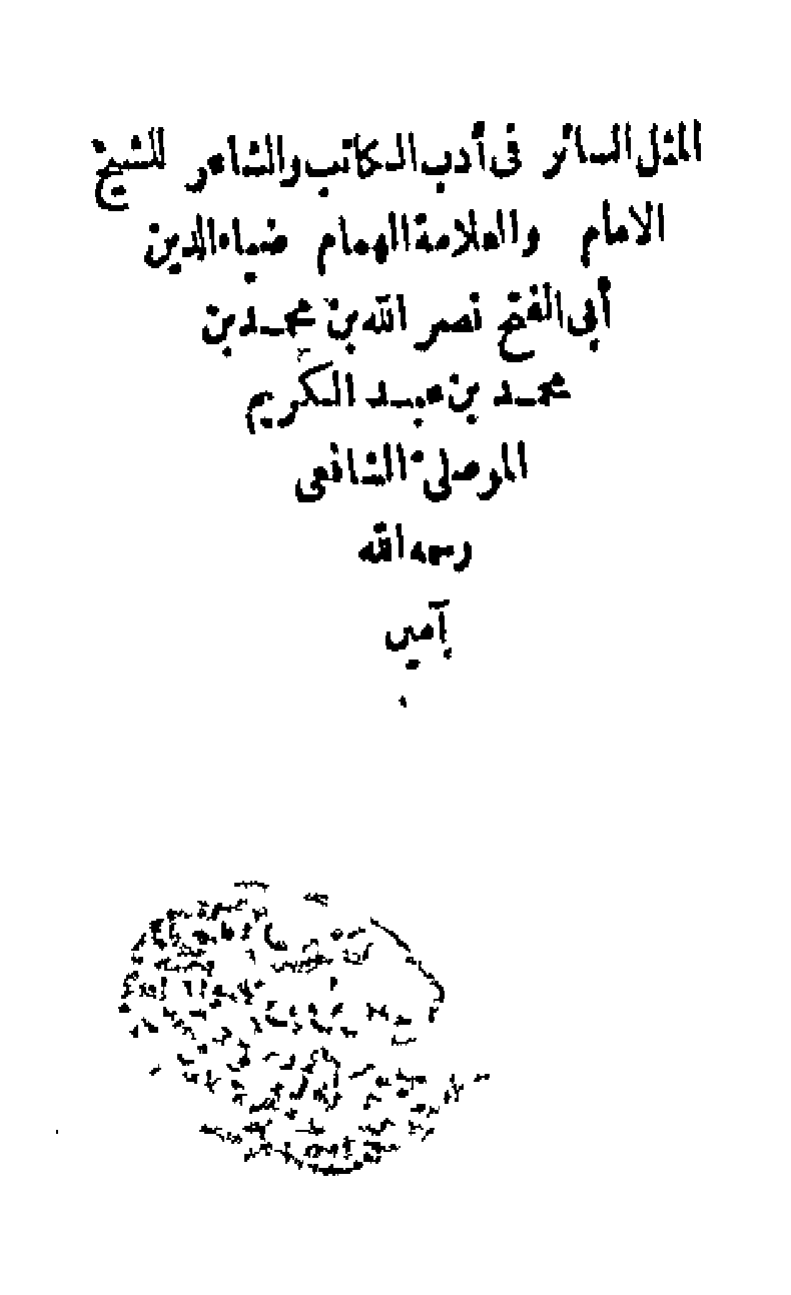 المثل السائر فى أدب الكاتب والشاعر للشيخ
الامام والعلامة الهمام ضياء الدين
أبى الفتح نصر الله بن محمد بن
محمد بن عبد الكريم
الموصلى الشافعى
رحمه الله
آمين